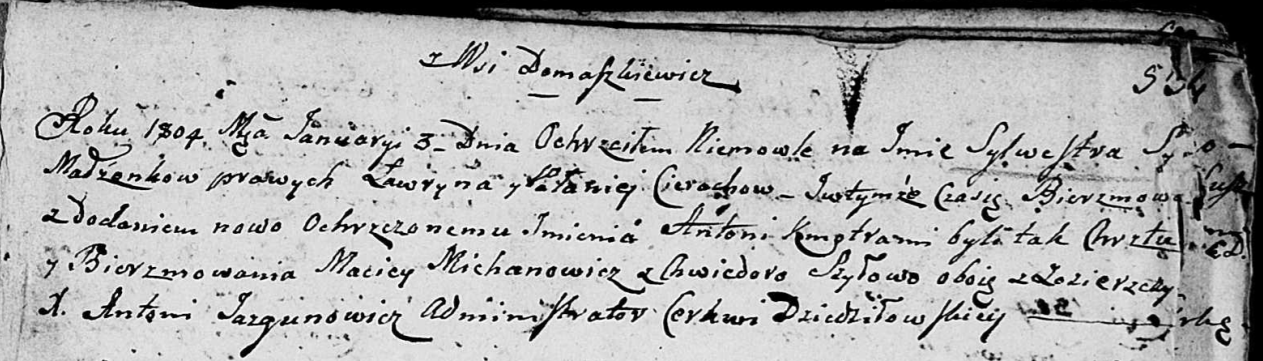 z Wsi Domaszkiewicz
Roku 1804. Mca Januaryi 3- Dnia Ochrzciłem Niemowle na Imie Sylwestra Syna
Małżenkow prawych Ławryna y Pałaniej Cierachow - Iwtymże Czasie Bierzmowa-
z dodaniem nowo Ochrzczonemu Imienia Antoni Kmotrami byli tak Chrztu
y Bierzmowania Maciey Michanowicz z Chwiedoro Szyłowo oboie z Łozierzczy.
X. Antoni Jazgunowicz Administrator Cerkwi Dziedziłowskiey